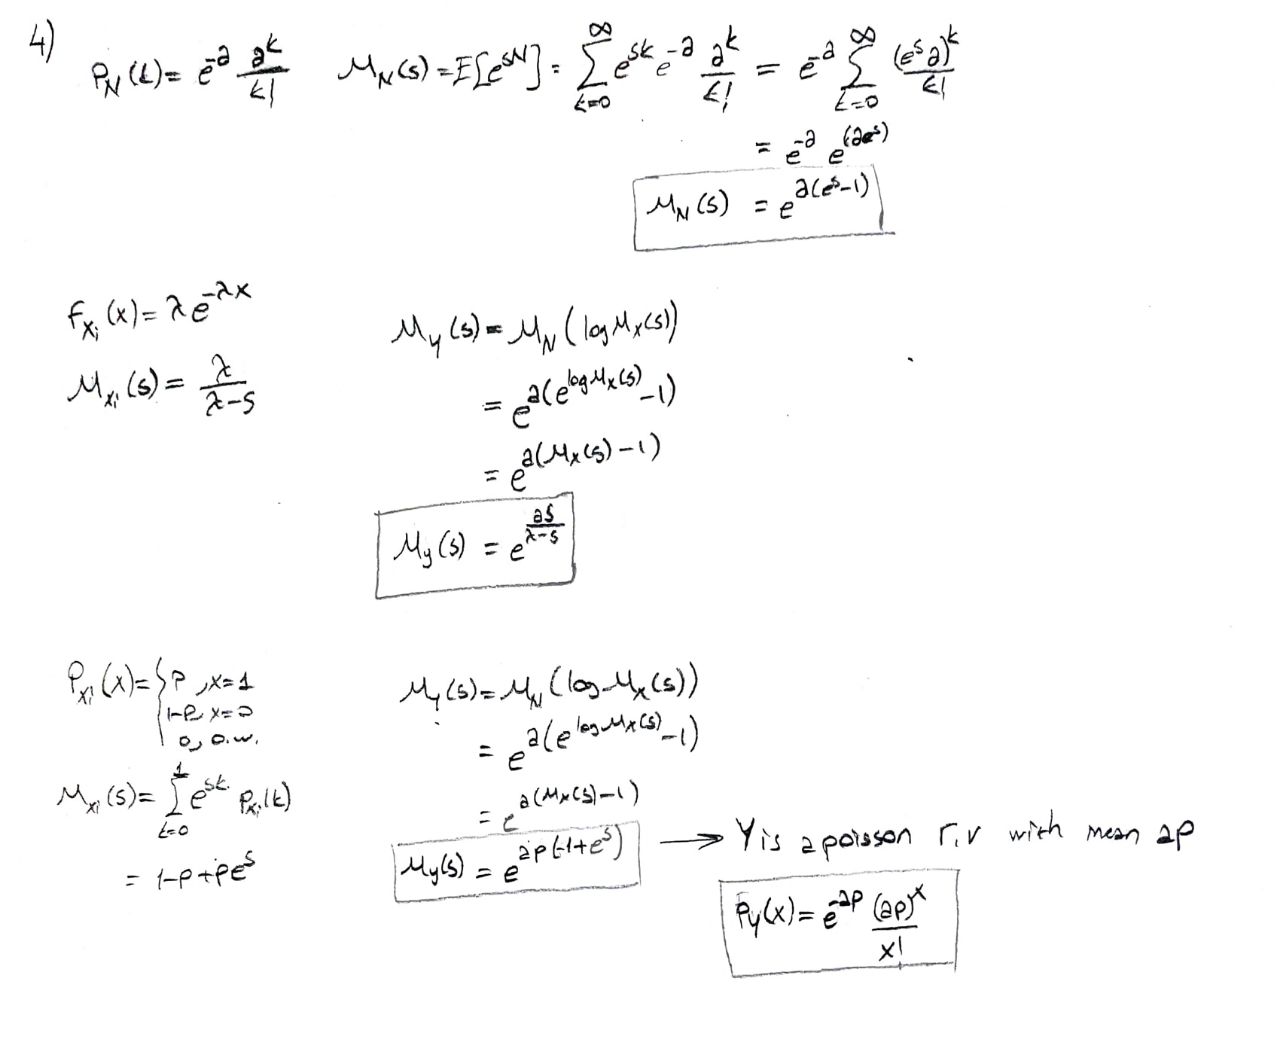 4)
P_N(k) = e^{-a} \frac{a^k}{k!}   M_N(s) = E[e^{sN}] = \sum_{k=0}^{\infty} e^{sk} e^{-a} \frac{a^k}{k!} = e^{-a} \sum_{k=0}^{\infty} \frac{(e^s a)^k}{k!}
= e^{-a} e^{(ae^s)}
M_N(s) = e^{a(e^s-1)}
f_{X_i}(x) = λe^{-λx}
M_{X_i}(s) = \frac{λ}{λ-s}
M_Y(s) = M_N(log M_X(s))
= e^{a(e^{log M_X(s)} -1)}
= e^{a(M_X(s)-1)}
M_y(s) = e^{\frac{as}{λ-s}}
P_{X_i}(x) = { P, x=1
1-P, x=0
0, o.w.
M_{X_i}(s) = \sum_{k=0}^{1} e^{sk} P_{X_i}(k)
= 1-P+Pe^s
M_Y(s) = M_N(log M_X(s))
= e^{a(e^{log M_X(s)} -1)}
= e^{a(M_X(s)-1)}
M_y(s) = e^{ap(-1+e^s)} → Y is a poisson r.v with mean ap
P_Y(x) = e^{-ap} \frac{(ap)^x}{x!}